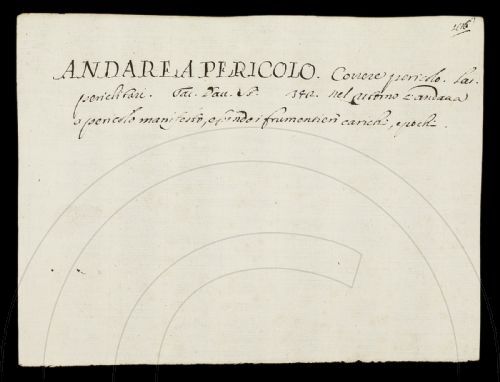 ANDARE A PERICOLO. Correre pericolo. Lat.
periclitari. Tac. Dav. 340. nel ritorno s'andava
a pericolo manifesto, essendo i frumentieri carichi, e pochi